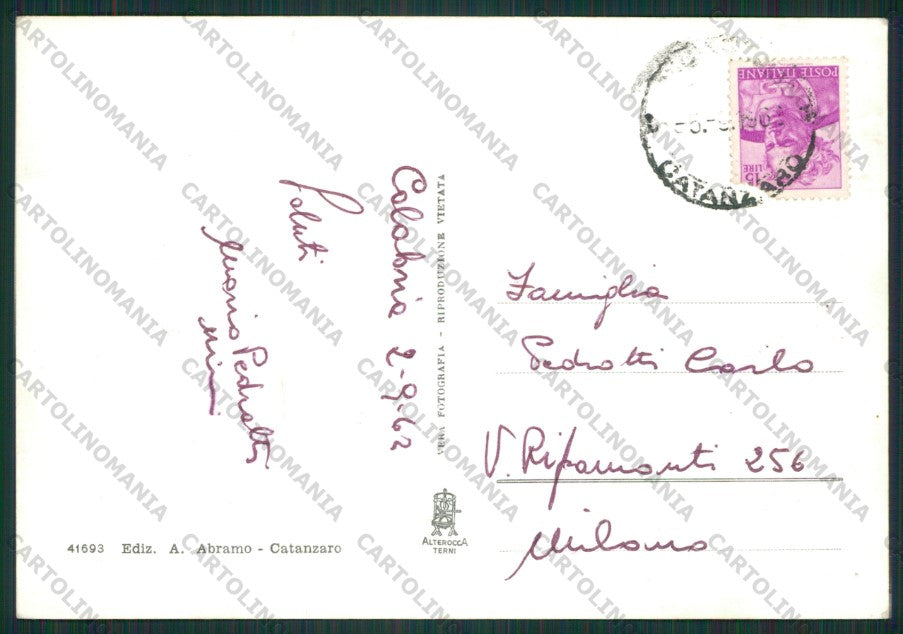 Calabria 2-9-62
Saluti
Mario Pedrotti
VERA FOTOGRAFIA - RIPRODUZIONE VIETATA
POSTE ITALIANE
LIRE 15
CATANZARO
Famiglia
Pedrotti Carlo
V. Ripamonti 256
Milano
41693 Ediz. A. Abramo - Catanzaro
ALTEROCCA
TERNI
CARTOLINOMANIA